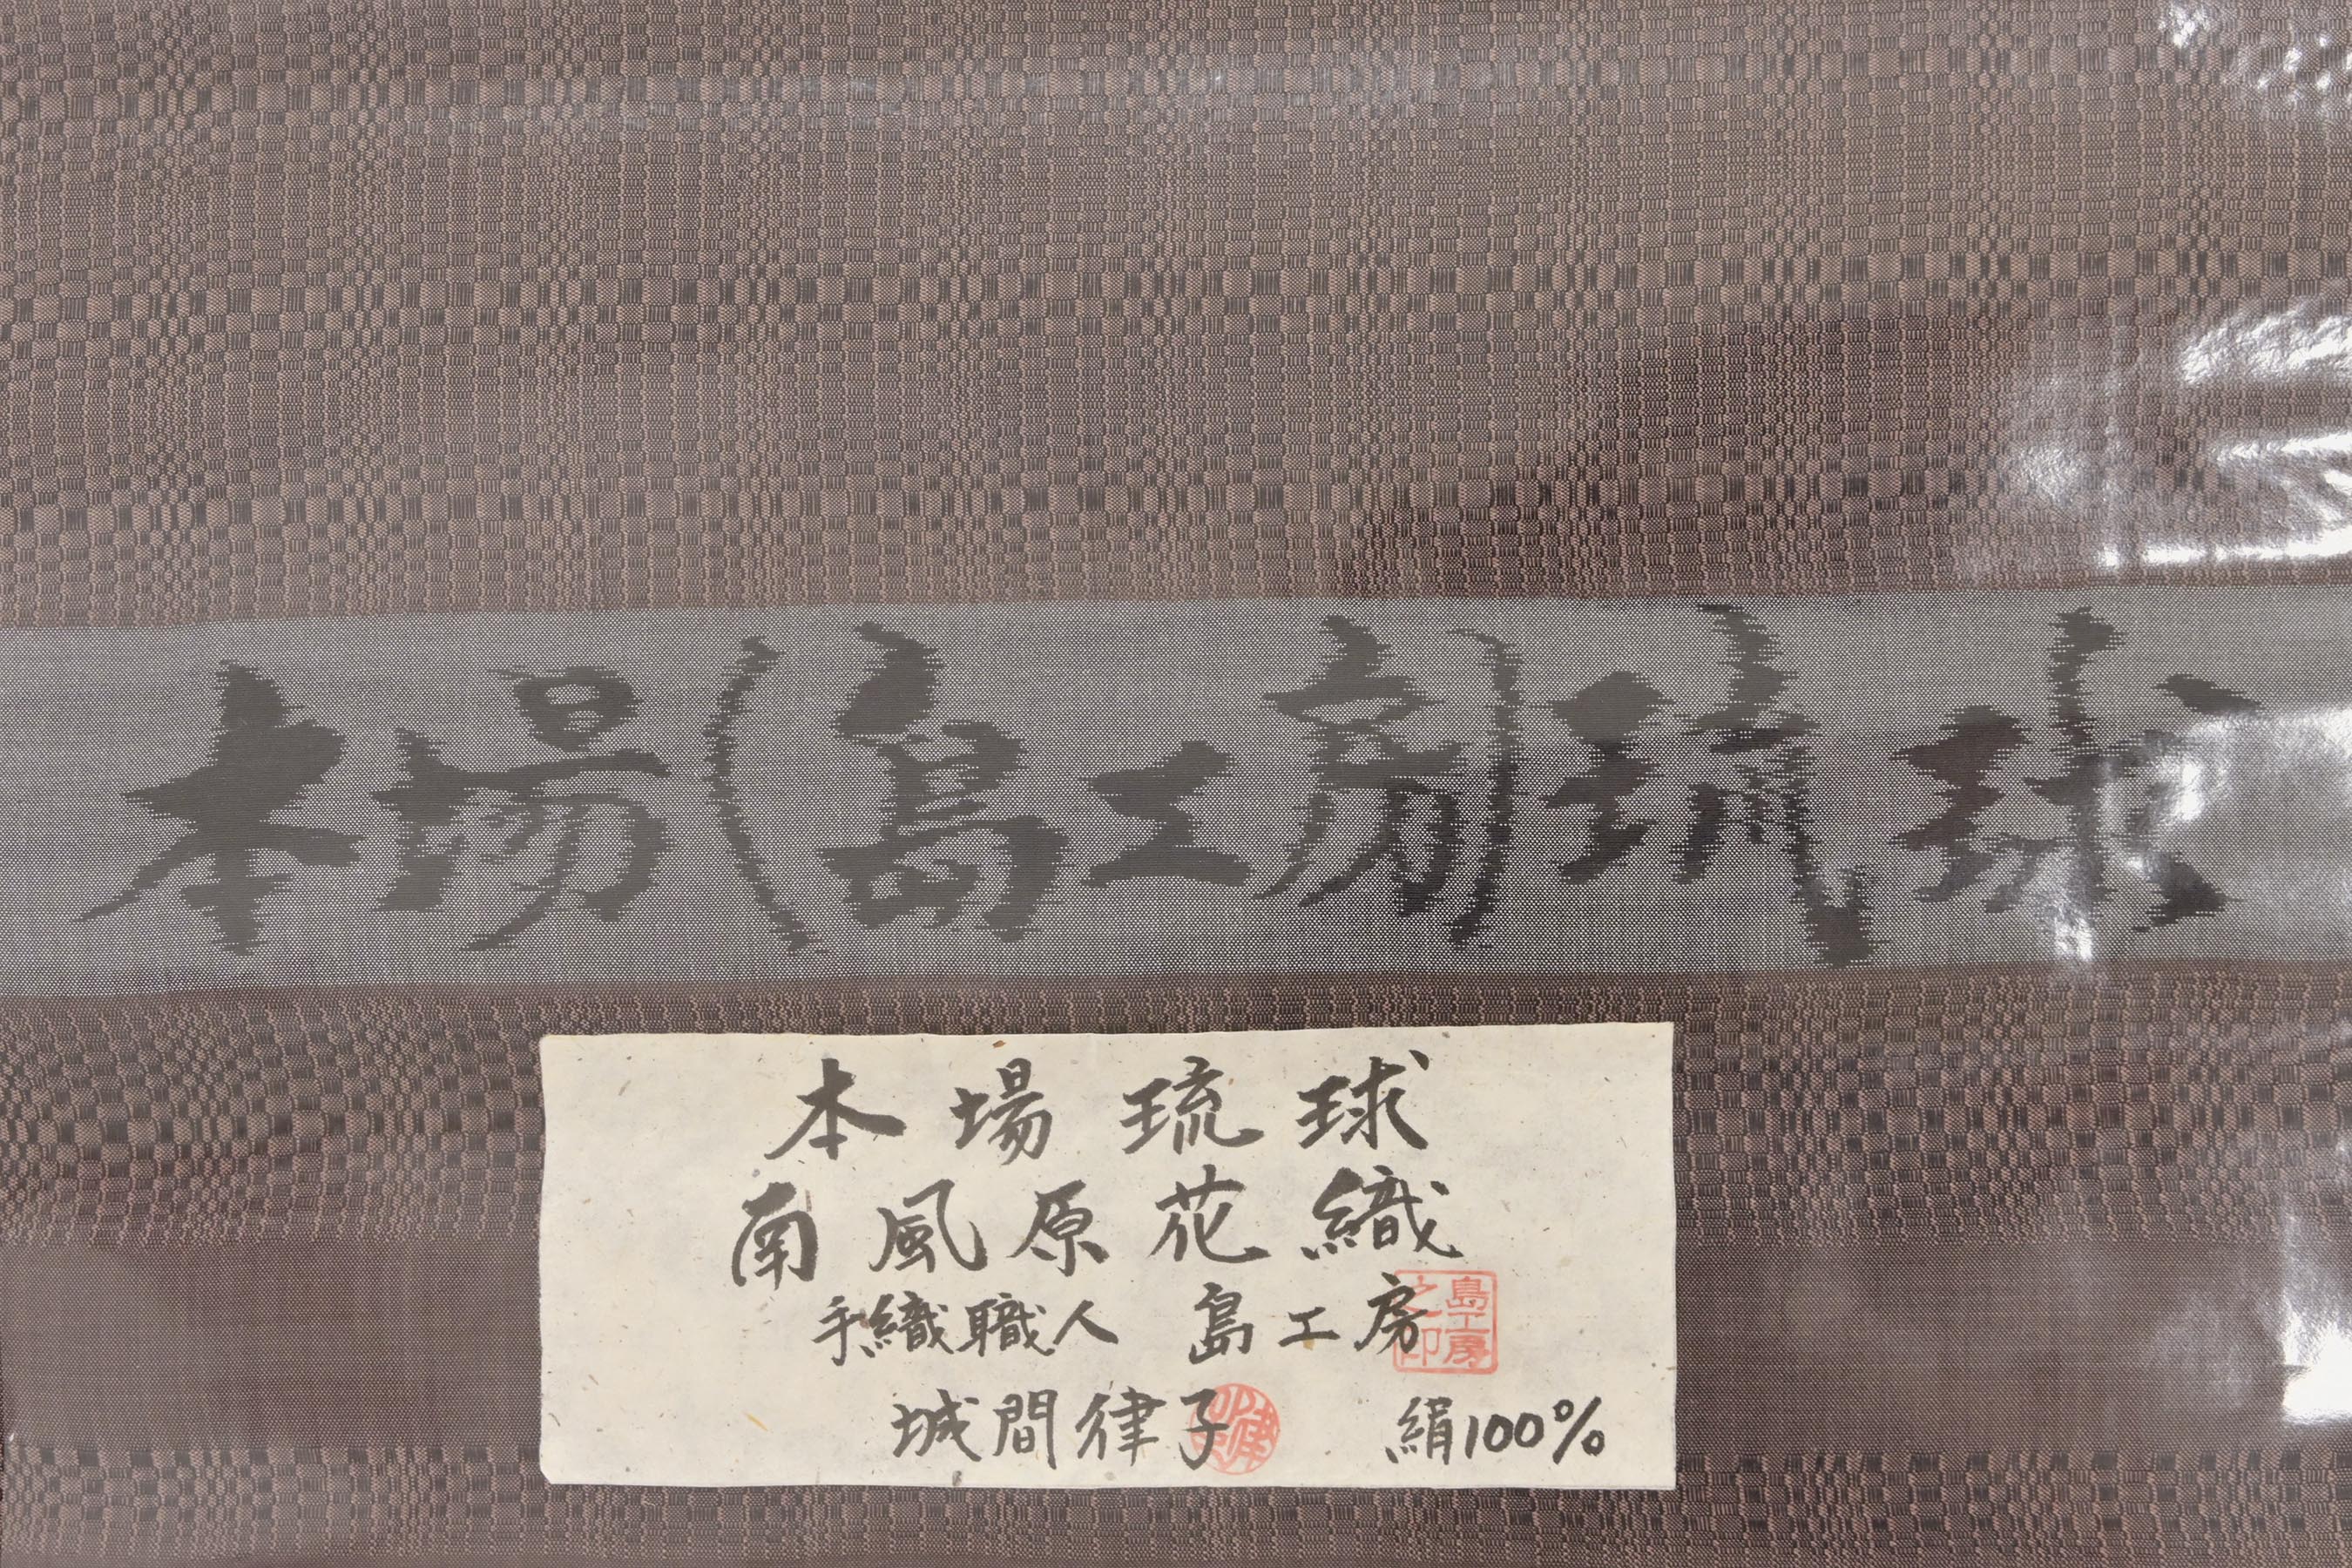 本場(島工房)琉球
本場琉球
南風原花織
手織職人 島工房
島工房之印
城間律子
絹100%